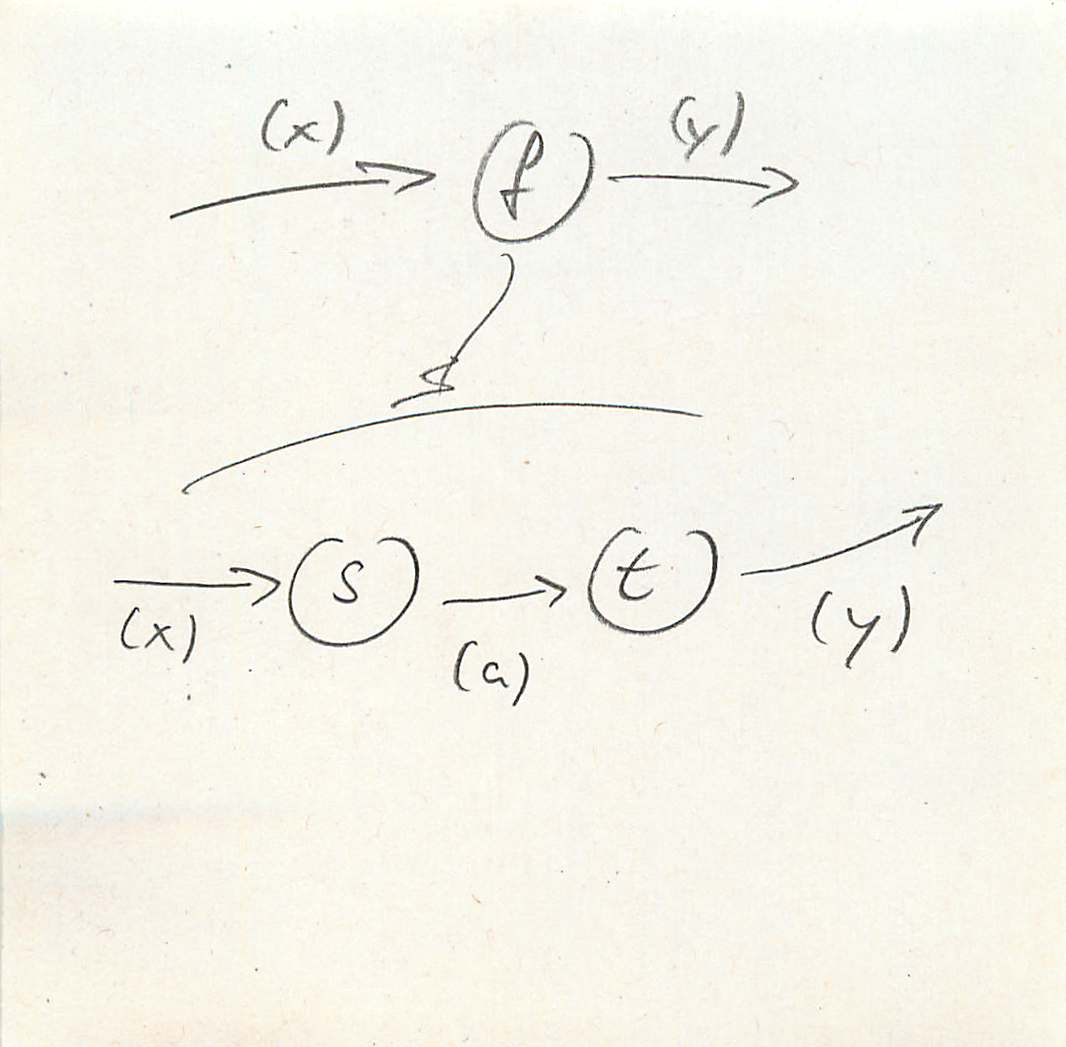 (x) f (y)
(x) s (a) t (y)